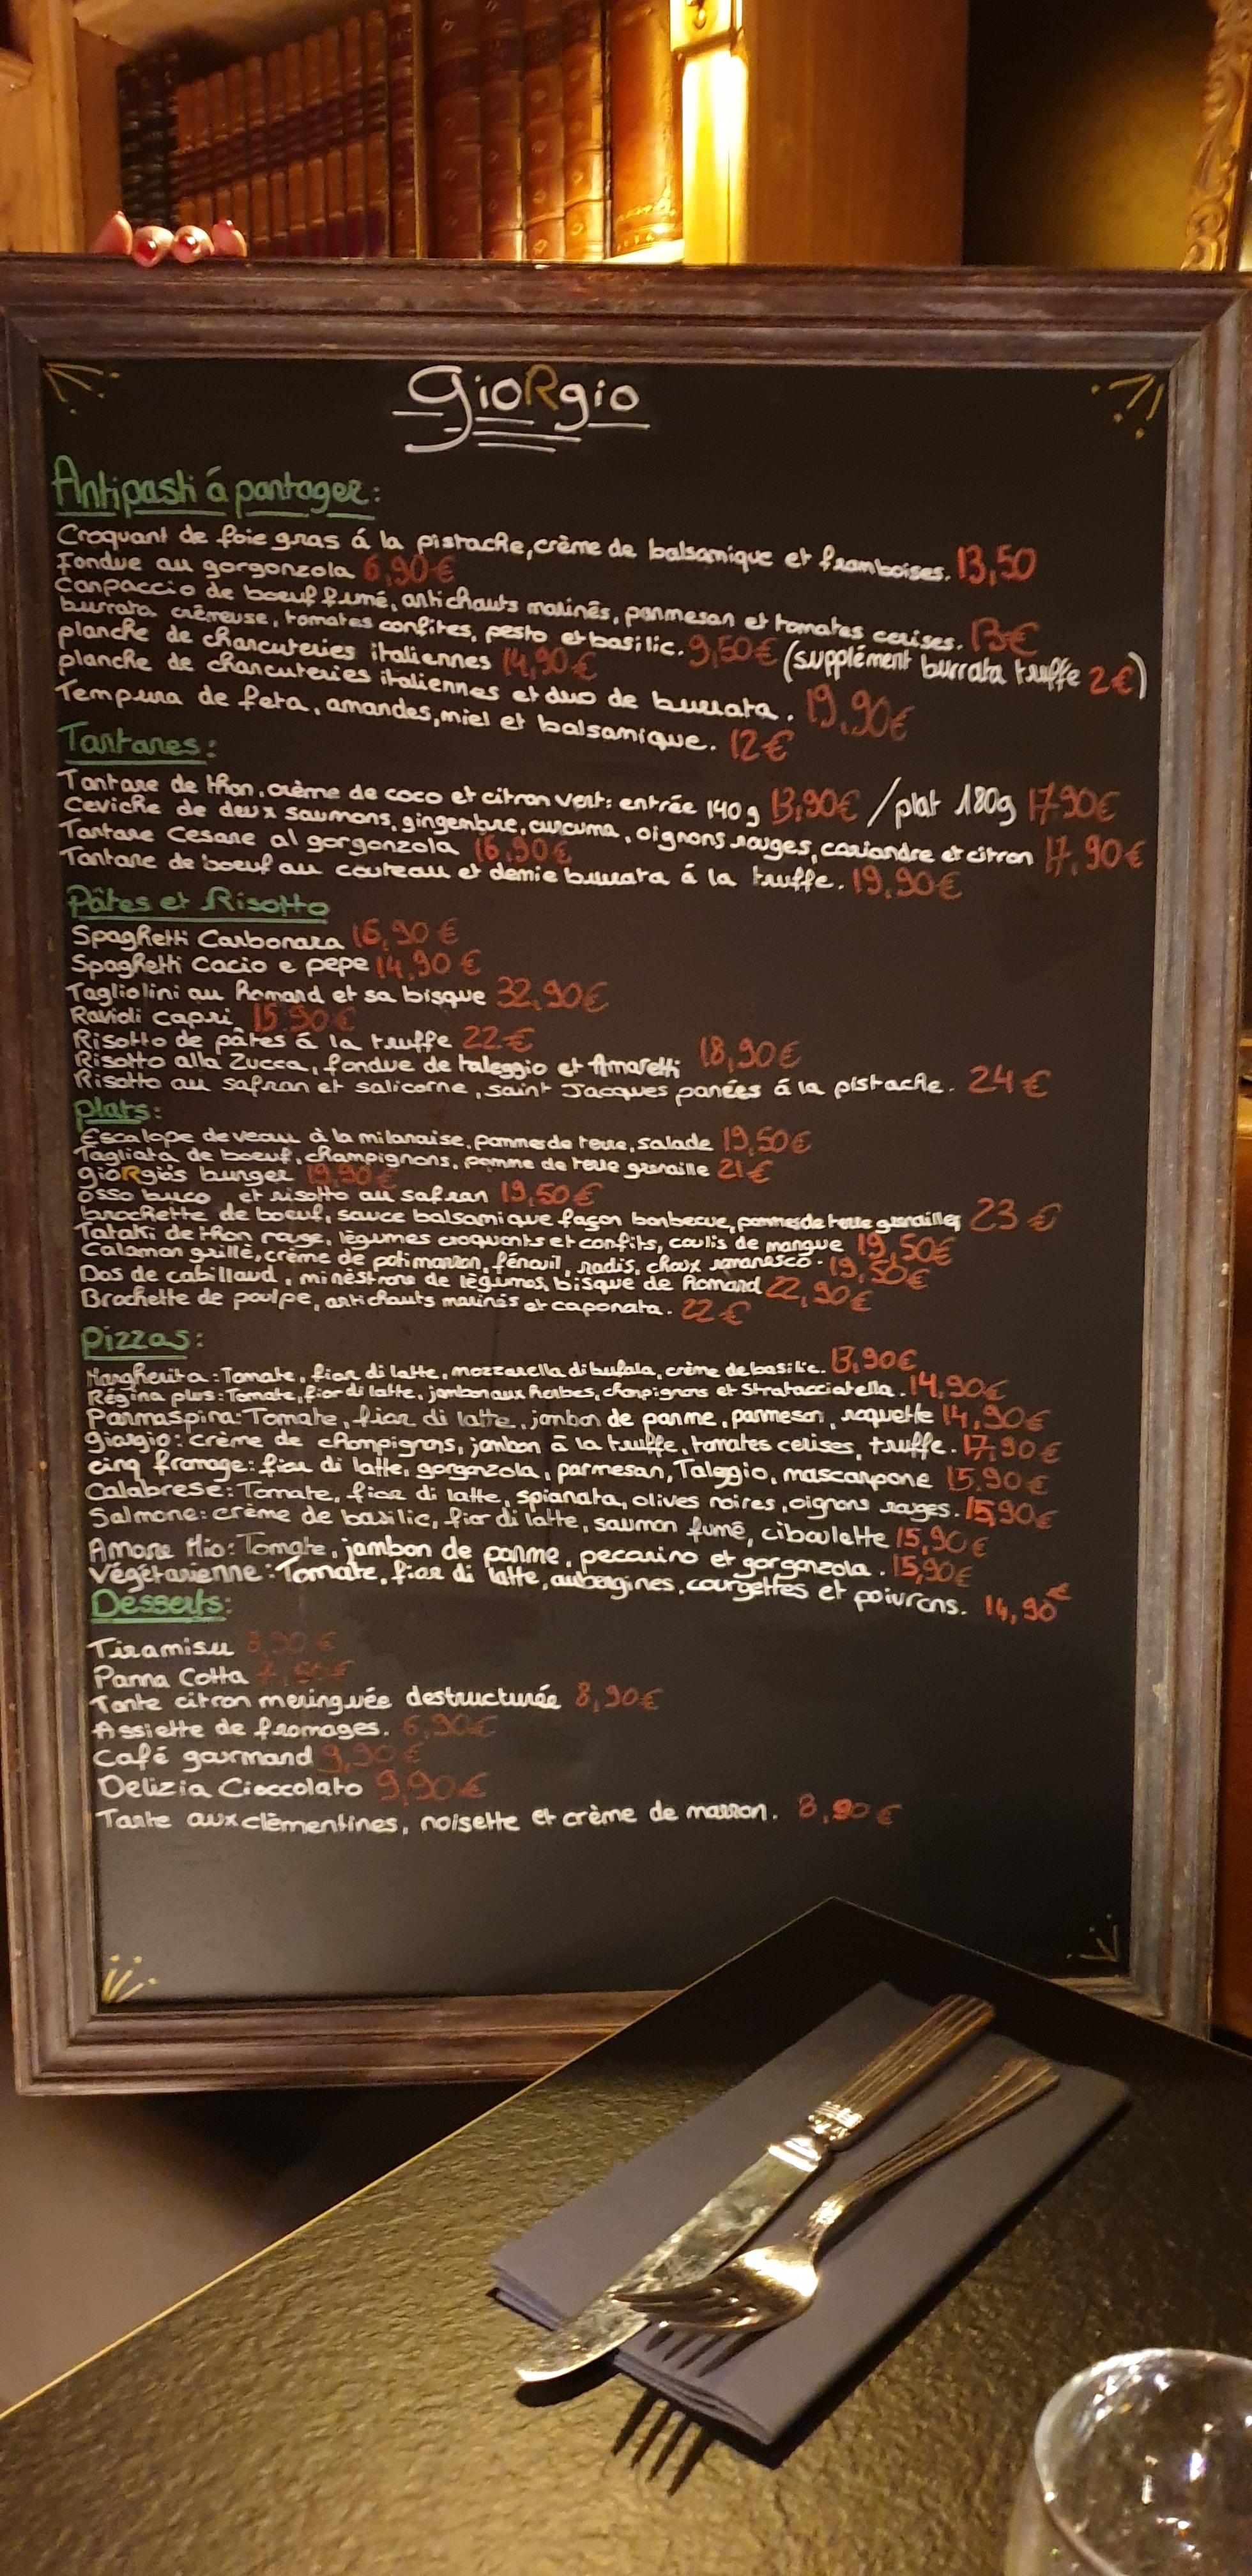 gioRgio
Antipasti á partager:
Croquant de foie gras á la pistache, crème de balsamique et framboises. 13,50
Fondue au gorgonzola 6,90€
Carpaccio de boeuf fumé, artichauts marinés, parmesan et tomates cerises. 13€
burrata crémeuse, tomates confites, pesto et basilic. 9,50€ (supplément burrata truffe 2€)
planche de charcuteries italiennes 14,90€
planche de charcuteries italiennes et duo de burrata. 19,90€
Tempura de feta, amandes, miel et balsamique. 12€
Tartares:
Tartare de thon, crème de coco et citron vert: entrée 140g 13,90€ / plat 180g 17.90€
Ceviche de deux saumons, gingembre, curcuma, oignons rouges, coriandre et citron 17,90€
Tartare Cesare al gorgonzola 16,90€
Tartare de boeuf au couteau et demie burrata á la truffe. 19,90€
Pâtes et Risotto
Spaghetti Carbonara 16,90€
Spaghetti Cacio e pepe 14,90€
Tagliolini au homard et sa bisque 32,90€
Ravioli Capri 15.90€
Risotto de pâtes á la truffe 22€
Risotto alla Zucca, fondue de taleggio et Amaretti 18,90€
Risotto au safran et salicorne, saint Jacques panées á la pistache. 24€
plats:
Escalope de veau à la milanaise, pommes de terre, salade 19,50€
Tagliata de boeuf, champignons, pomme de terre grenaille 21€
gioRgio's burger 19,90€
Osso buco, et risotto au safran 19,50€
brochette de boeuf, sauce balsamique façon barbecue, pommes de terre grenailles 23€
Tataki de thon rouge, légumes croquants et confits, coulis de mangue 19,50€
Calamar grillé, crème de potimarron, fénouil, radis, choux romanesco. 19,50€
Dos de cabillaud, minéstrone de légumes, bisque de homard 22,90€
Brochette de poulpe, artichauts marinés et caponata. 22€
Pizzas:
Margherita: Tomate, fior di latte, mozzarella di bufala, crème de basilic. 13,90€
Régina plus: Tomate, fior di latte, jambon aux herbes, champignons et Stratacciatella. 14,90€
Parmaspina: Tomate, fior di latte, jambon de parme, parmesan, roquette 14,90€
giorgio: crème de champignons, jambon à la truffe, tomates cerises, truffe. 17,90€
cinq fromage: fior di latte, gorgonzola, parmesan, Taleggio, mascarpone 15.90€
Calabrese: Tomate, fior di latte, spianata, olives noires, oignons rouges. 15,90€
Salmone: crème de basilic, fior di latte, saumon fumé, ciboulette 15,90€
Amore Mio: Tomate, jambon de parme, pecorino et gorgonzola. 15,90€
Végétarienne: Tomate, fior di latte, aubergines, courgettes et poivrons. 14,90€
Desserts:
Tiramisu 8,90€
Panna Cotta
Tarte citron meringuée destructurée 8,90€
Assiette de fromages. 6,90€
Café gourmand 9,90€
Delizia Cioccolato 9,90€
Tarte aux clèmentines, noisette et crème de marron. 8,90€